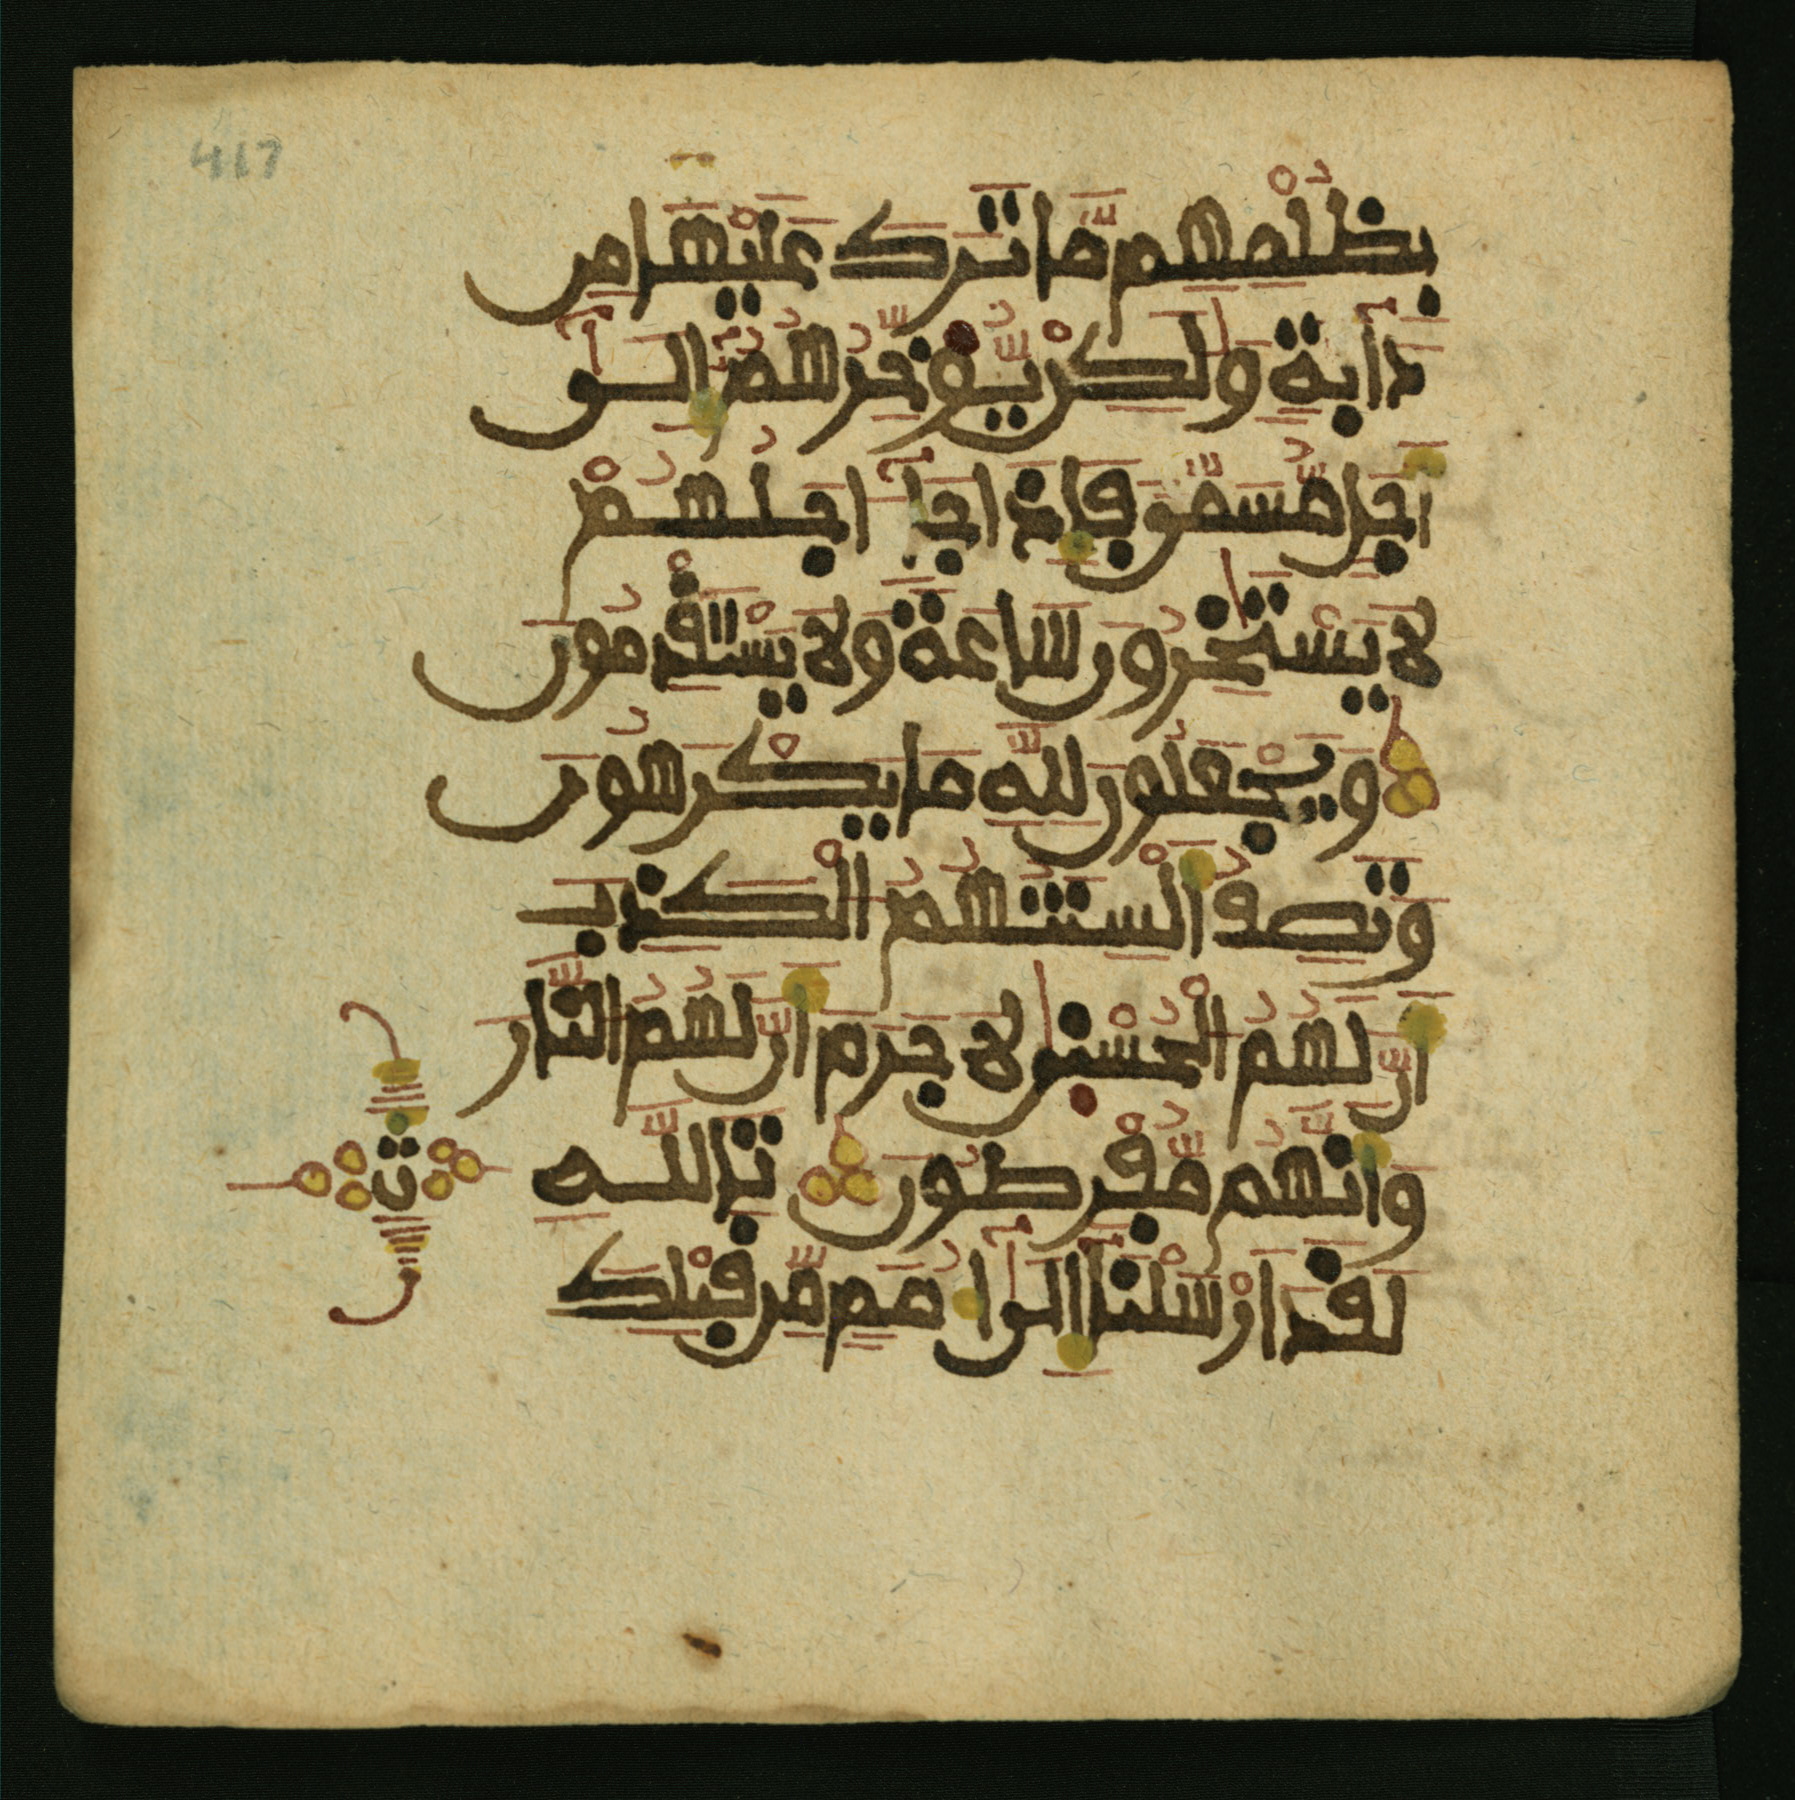 417
بِظُلْمِهِم مَّا تَرَكَ عَلَيْهَا مِن
دَآبَّةٍ وَلَٰكِنْ يُّؤَخِّرُهُمُ إِلَىٰٓ
أَجَلٍ مُّسَمًّى فَإِذَا جَآ أَجَلُهُمْ
لَا يَسْتَٰخِرُونَ سَاعَةً وَلَا يَسْتَقْدِمُونَ
وَيَجْعَلُونَ لِلَّهِ مَا يَكْرَهُونَ
وَتَصِفُ أَلْسِنَتُهُمُ الْكَذِبَ
أَنَّ لَهُمُ الْحُسْنَىٰ لَا جَرَمَ أَنَّ لَهُمُ النَّارَ
وَأَنَّهُم مُّفْرِطُونَ تَاللَّهِ
ت
لَقَدَ ارْسَلْنَآ إِلَىٰٓ أُمَمٍ مِّن قَبْلِكَ